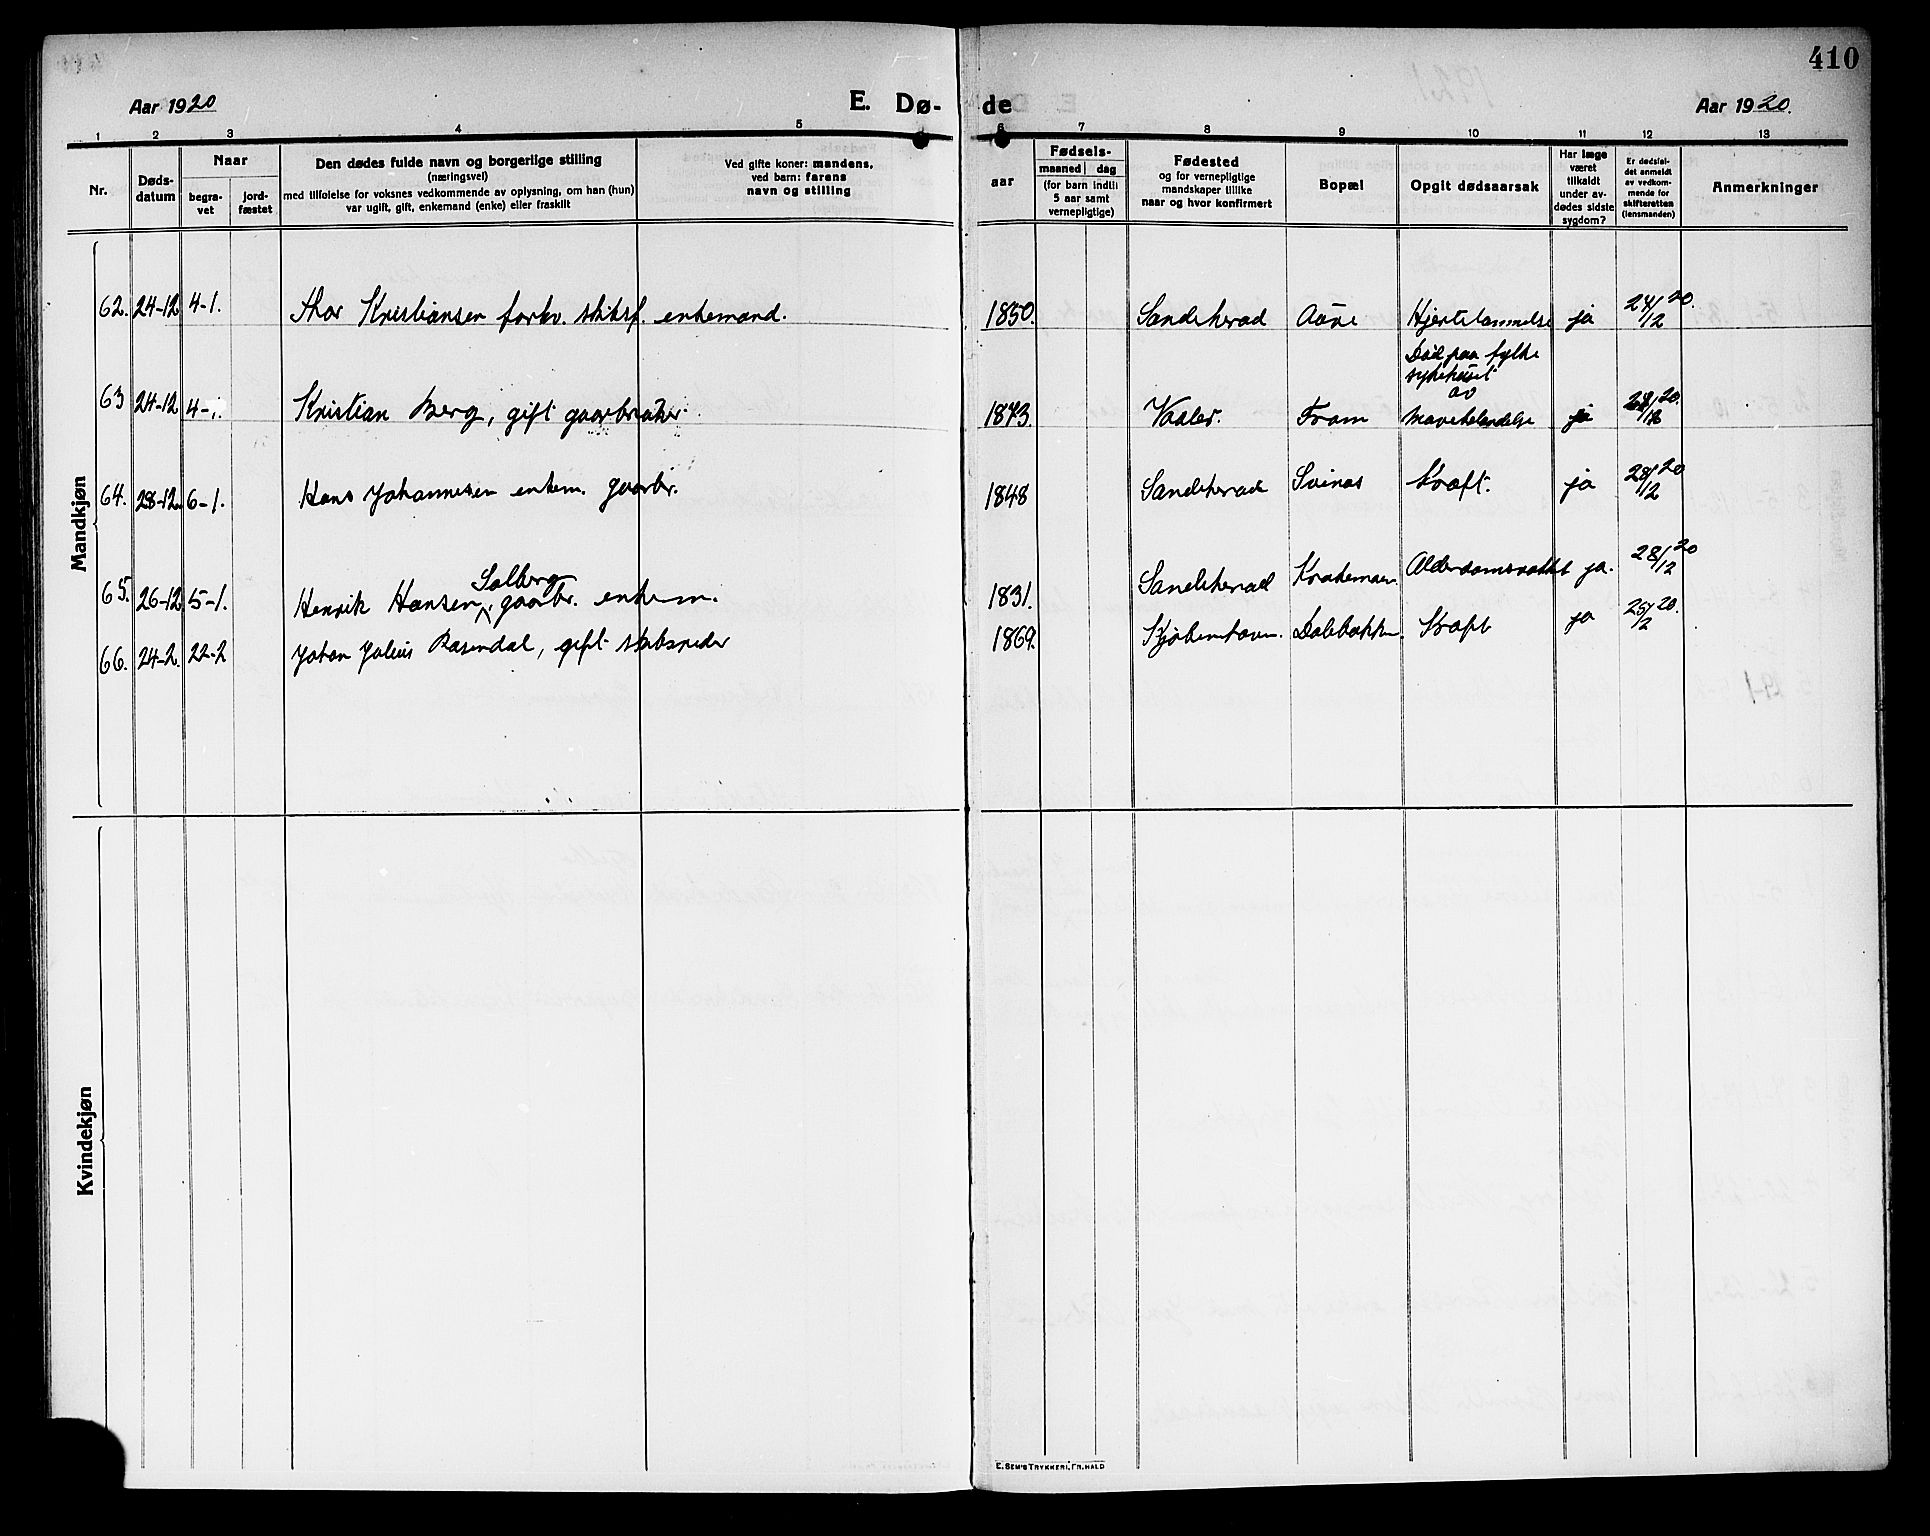 410
Aar 1920
E. Dø-
de
Aar 1920.
1 2 3 4 5 6 7 8 9 10 11 12 13
Nr.
Døds-
datum
Naar
begra-
vet
jord-
fæstet
Den dødes fulde navn og borgerlige stilling
(næringsvei)
med tilføielse for voksnes vedkommende av oplysning, om han (hun)
var ugift, gift, enkemand (enke) eller fraskilt
Ved gifte koner: mandens,
ved barn: farens
navn og stilling
aar
Fødsels-
maaned dag
(for barn indtil
5 aar samt
vernepligtige)
Fødested
og for vernepligtige
mandskaper tillike
naar og hvor konfirmert
Bopæl
Opgit dødsaarsak
Har læge
været
tilkaldt
under av-
dødes sidste
sygdom?
Er dødsfal-
det anmeldt
av vedkom-
mende for
skifteretten
(lensmanden)
Anmerkninger
Mandkjøn
62. 24-12 4-1. Thor Kristiansen forhv. skibsf. enkemand. 1850. Sandeherad Aane Hjertelammelse ja 24/12 20.
63 24-12 4-1. Kristian Berg, gift gaarbruker 1873. Vaaler. Fram Død paa fylke
sykehuset
av
mavebetændelse ja 28/12 20.
64. 28-12 6-1. Hans Johannesen enkem. gaarbr. 1848 Sandeherad Svinas Kræft. ja 28/12 20
65. 26-12 5-1. Henrik Hansen Solberg, gaarbr. enkem. 1831. Sandeherad Alderdomssvakhet ja. 28/12 20
66. 24-2. 22-2 Johan Julius Rosendal, gift skibsreder 1869. Kjøbenhavn. Dalebakken. Kræft ja 25/2 20.
Kvindekjøn
E. SEM'S TRYKKERI, FR.HALD